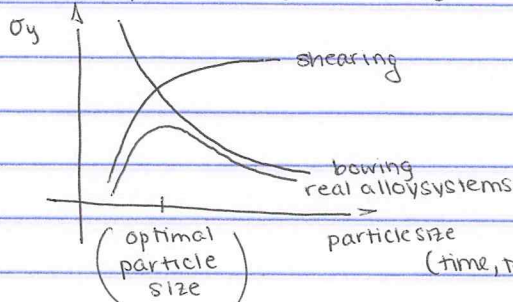 σy
shearing
bowing
real alloysystems
(optimal particle size)
particle size
(time,